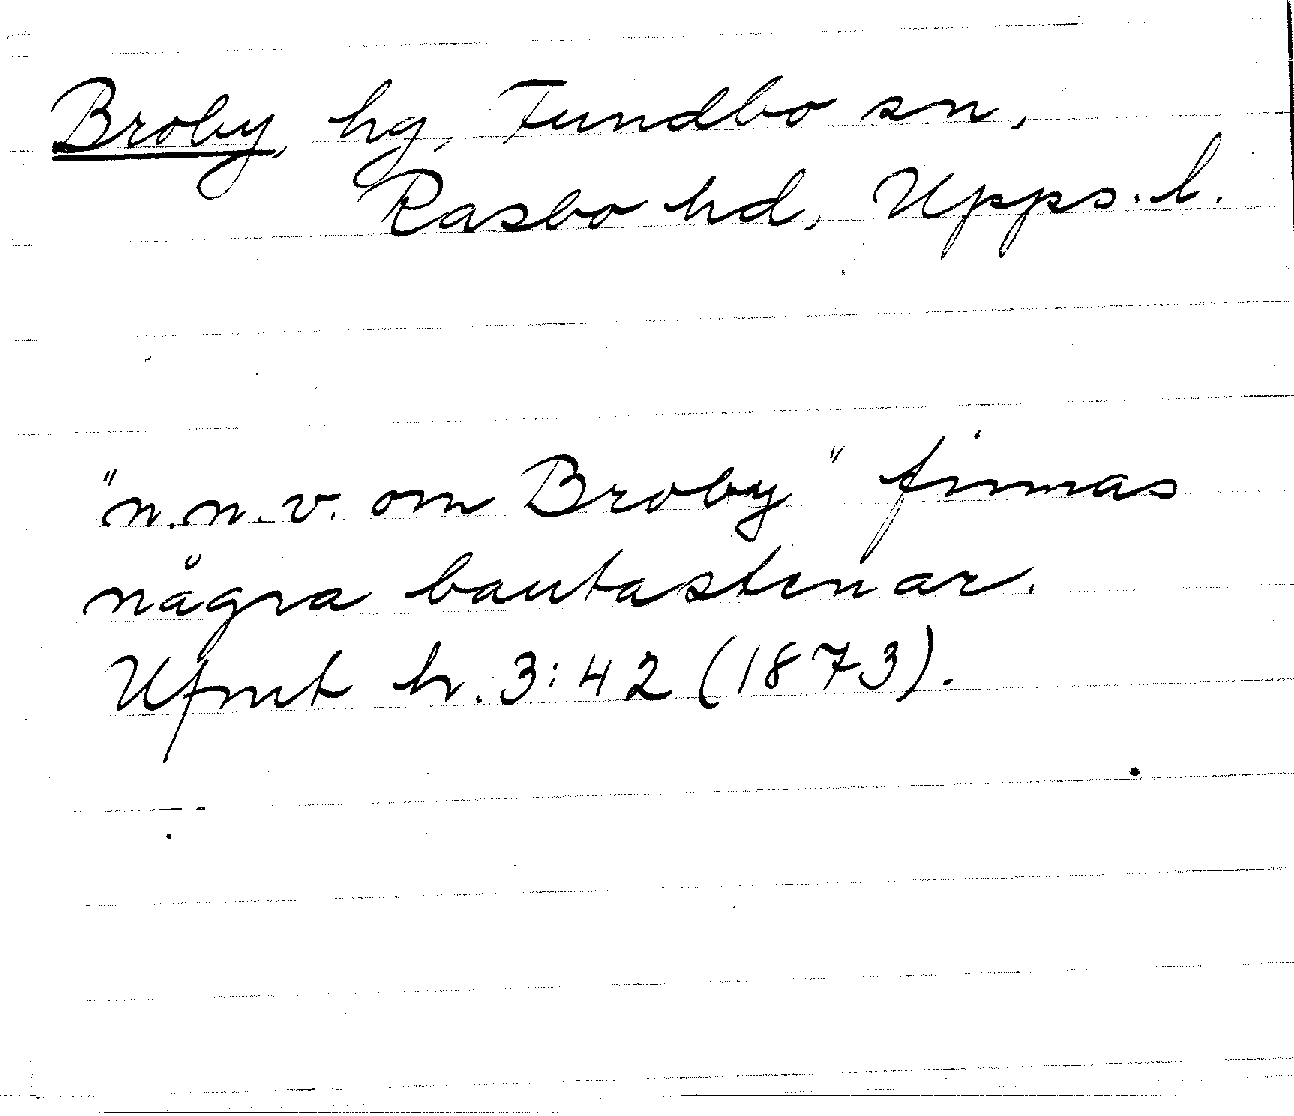 Broby, hg, Funbo sn,
Rasbo hd, Upps. l.
"n.n.v. om Broby" finnas
några bautastenar.
Ufmt h. 3:42 (1873).